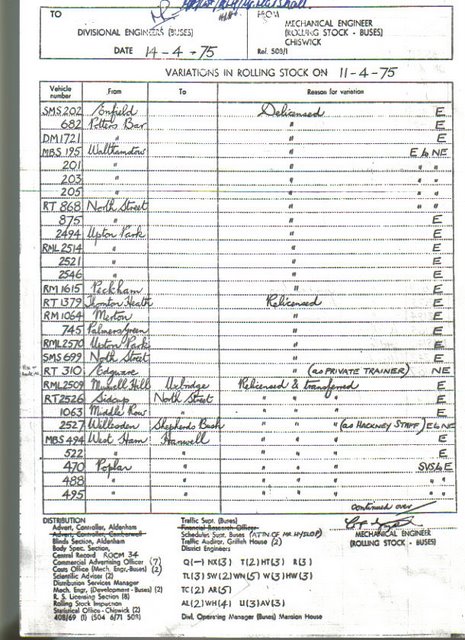 TO
FROM
DIVISIONAL ENGINEERS (BUSES)
MECHANICAL ENGINEER
(ROLLING STOCK - BUSES)
CHISWICK
DATE 14-4-75
Ref. 503/1
VARIATIONS IN ROLLING STOCK ON 11-4-75
Vehicle number From To Reason for variation
SMS 202 Enfield Delicensed E
682 Potters Bar " E
DM1721 " " E
MBS 195 Walthamstow " E & NE
201 " " " "
203 " " " "
205 " " " "
RT 868 North Street " " "
875 " " E
2494 Upton Park " E
RML 2514 " " E
2521 " " E
2546 " " E
RM 1615 Peckham " E
RT 1379 Thornton Heath Relicensed E
RM 1064 Merton " E
745 Palmers Green " E
RML 2570 Upton Park " E
SMS 699 North Street " E
RT 310 Edgware " (as PRIVATE TRAINER) NE
RML 2509 Muswell Hill Uxbridge Relicensed & transferred E
RT 2526 Sidcup North Street " " " E
1063 Middle Row " " " " E
2527 Willesden Shepherds Bush " " " (as HACKNEY STAFF) E & NE
MBS 494 West Ham Hanwell " " " E
522 " " " " " E
470 Poplar " " " " SVS & E
488 " " " " " " "
495 " " " " " " "
continued over
DISTRIBUTION
Advert. Controller, Aldenham
Advert. Controller, Camberwell
Blinds Section, Aldenham
Body Spec. Section,
Central Record ROOM 34
Commercial Advertising Officer (7)
Costs Office (Mech. Engr.-Buses) (2)
Scientific Advisor (2)
Distribution Services Manager
Mech. Engr. (Development - Buses) (2)
R. S. Licensing Section (8)
Rolling Stock Inspection
Statistical Office - Chiswick (2)
Traffic Supt. (Buses)
Financial Research Officer
Schedules Supt. (Buses) (ATTN OF MR HYSLOP)
Traffic Auditor, Griffith House (2)
District Engineers
Q(-) NX(3) T(2) HT(3) R(3)
TL(3) SW(2) WN(5) W(3) HW(3)
TC(2) AR(5)
AL(2) WH(4) U(3) AV(3)
Divl. Operating Manager (Buses) Mansion House
MECHANICAL ENGINEER
(ROLLING STOCK - BUSES)